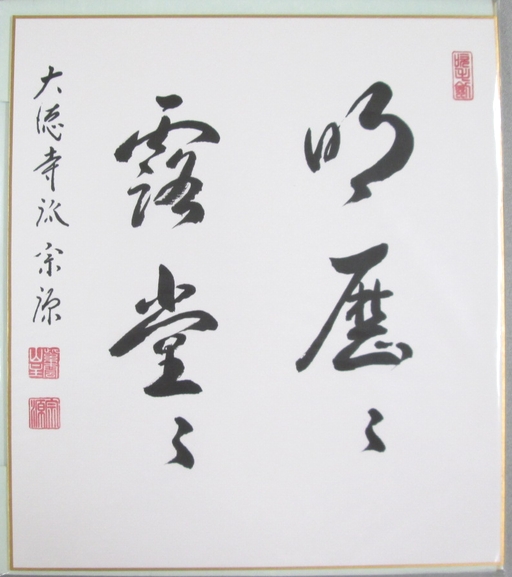 明歴々
露堂々
大徳寺派宗源